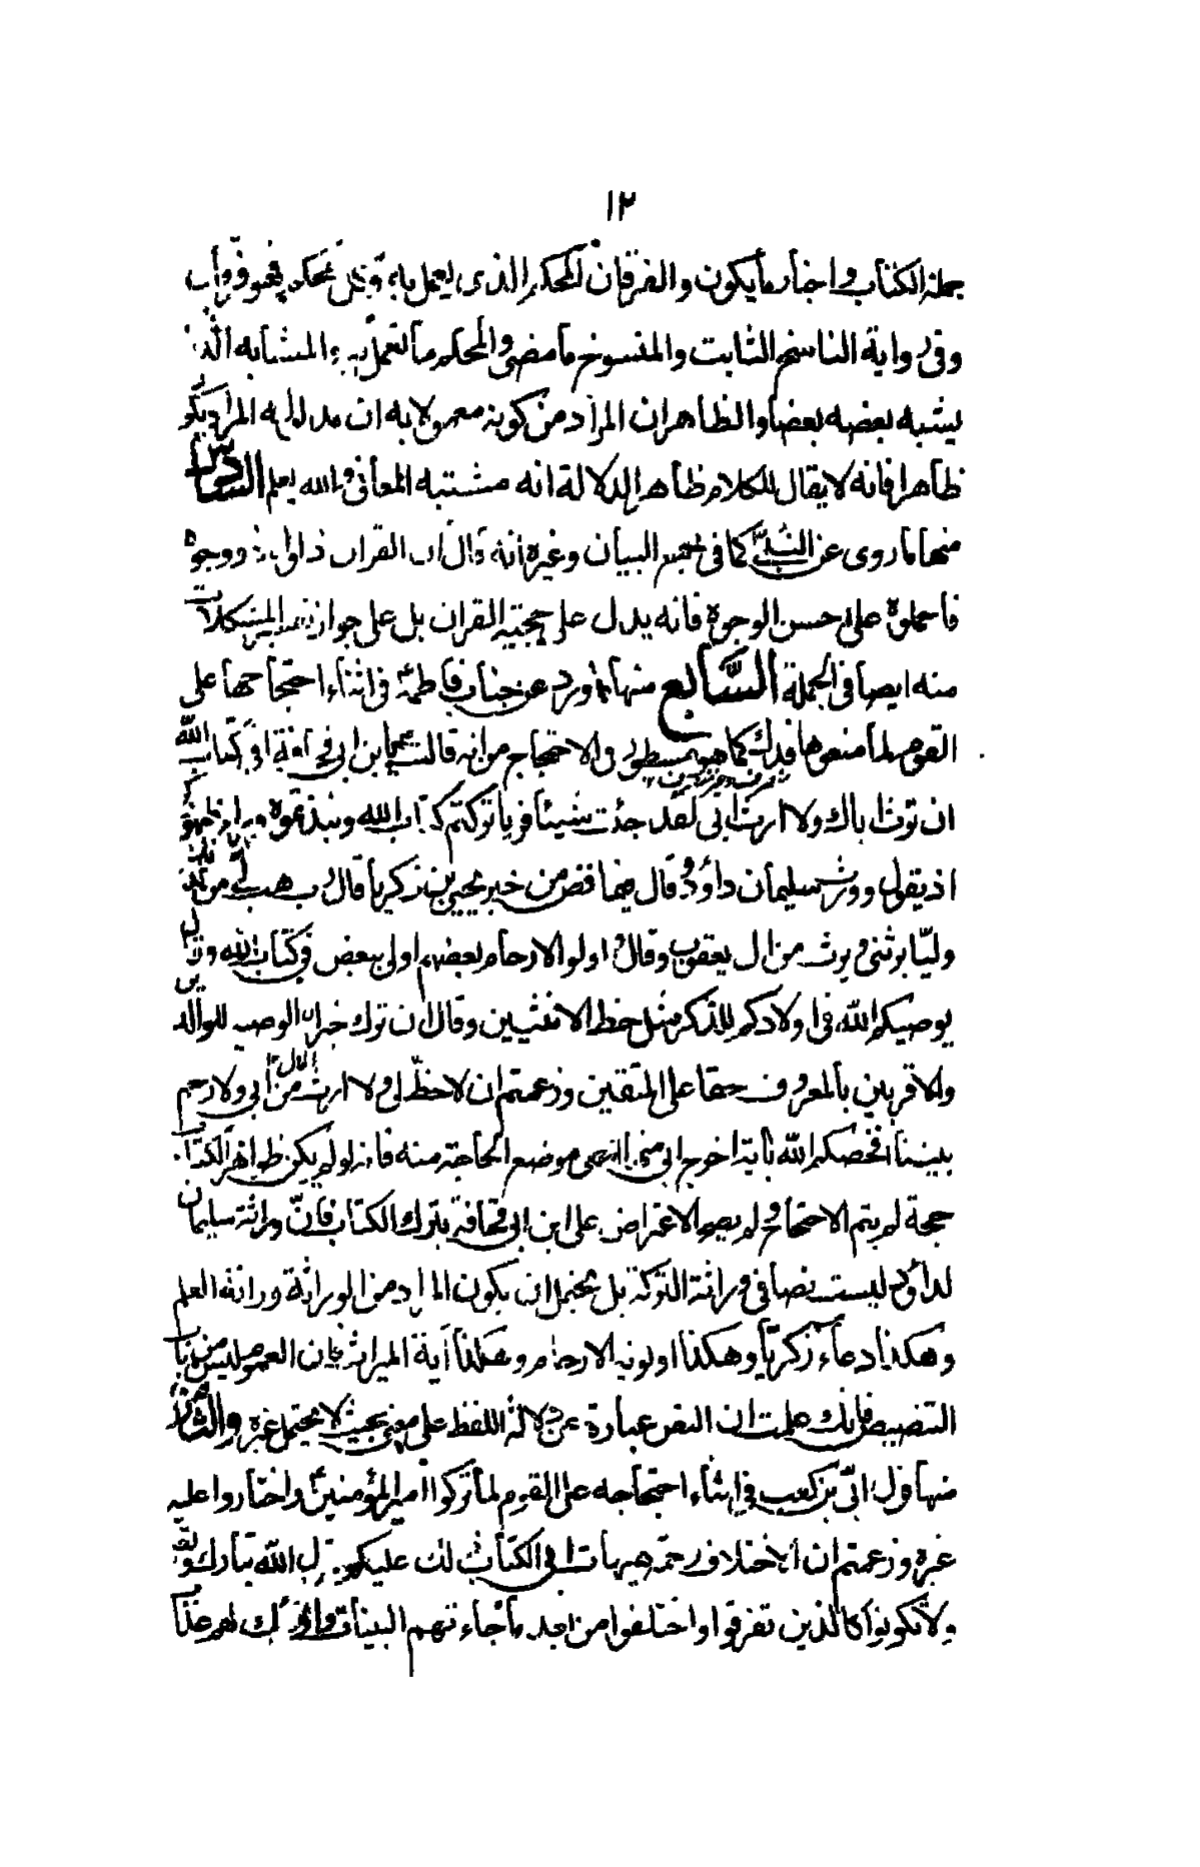 ١٢
جملة الكتاب واخبار ما يكون والفرقان المحكم الذى يعمل به وكل محكم فهو فرقان
وفى رواية الناسخ الثابت والمنسوخ ما مضى والمحكم ما تعمل به والمتشابه الذى
يشبه بعضه بعضا والظاهر ان المراد من كونه معمولا به ان مدلوله المراد يكو
ظاهرا فانه لا يقال للكلام ظاهر الدلالة انه مشتبه المعانى والله يعلم السادس
منها ما روى عن النبى كما فى مجمع البيان وغيره انه قال ان القران ذلول ذو وجوه
فاحملوه على احسن الوجوه فانه يدل على حجية القران بل على جواز المشكلات
منه ايضا فى الجملة السابع منها ما ورد عن جناب فاطمة فى اثناء احتجاجها على
القوم لما منعوها فدك كما هو مسطور فى الاحتجاج من انه قالت يا بن ابى قحافة افى كتاب الله
ان ترث اباك ولا ارث ابى لقد جئت شيئا فريا تركتم كتاب الله ونبذتموه وراء ظهوركم
اذ يقول وورث سليمان داؤد وقال فيما قص من خبر يحيى بن زكريا قال رب هب لى من لدنك
وليا يرثنى ويرث من ال يعقوب وقال واولوا الارحام بعضهم اولى ببعض فى كتاب الله وقال
يوصيكم الله فى اولادكم للذكر مثل حظ الانثيين وقال ان ترك خيرا الوصية للوالدين
والاقربين بالمعروف حقا على المتقين وزعمتم ان لا حظ لى ولا ارث من ابى ولا رحم
بيننا افخصكم الله بآية اخرج ابى منها انتهى موضع الحاجة منه فانه لو لم يكن ظواهر الكتاب
حجة لم يتم الاحتجاج ولم يصح الاعتراض على ابن ابى قحافة بترك الكتاب فان وراثة سليمان
لداؤد ليست نصا فى وراثة التركة بل يحتمل ان يكون المراد من الوراثة وراثة العلم
وهكذا دعاء زكريا وهكذا اولوية الارحام وهكذا آية الميراث فان العموم ليس من باب
التنصيص فانك علمت ان النص عبارة عن دلالة اللفظ على معنى بحيث لا يحتمل غيره والثامن
منها قول ابى بن كعب فى اثناء احتجاجه على القوم لما تركوا امير المؤمنين واختاروا عليه
غيره وزعمتم ان الاختلاف رحمة هيهات ابى الكتاب ذلك عليكم يقول الله تبارك وتعالى
ولا تكونوا كالذين تفرقوا واختلفوا من بعد ما جاءتهم البينات واولئك لهم عذاب